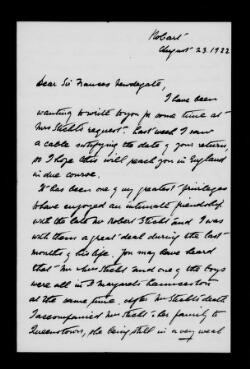 Hobart
August 23. 1922
Dear Sir Frances Newdegate,
I have been
wanting to write to you for some time at
Mrs Sticht's request. Last week I saw
a cable notifying the date of your return,
so I hope this will reach you in England
in due course.
It has been one of my greatest privileges
to have enjoyed an intimate friendship
with the late Mr Robert Sticht and I was
with them a great deal during the last
months of his life. You may have heard
that Mr & Mrs Sticht and one of the boys
were all in St Margaret's
at the same time. After Mr Sticht's death
I accompanied Mrs Sticht & her family to
Queenstown, she being still in a very weak